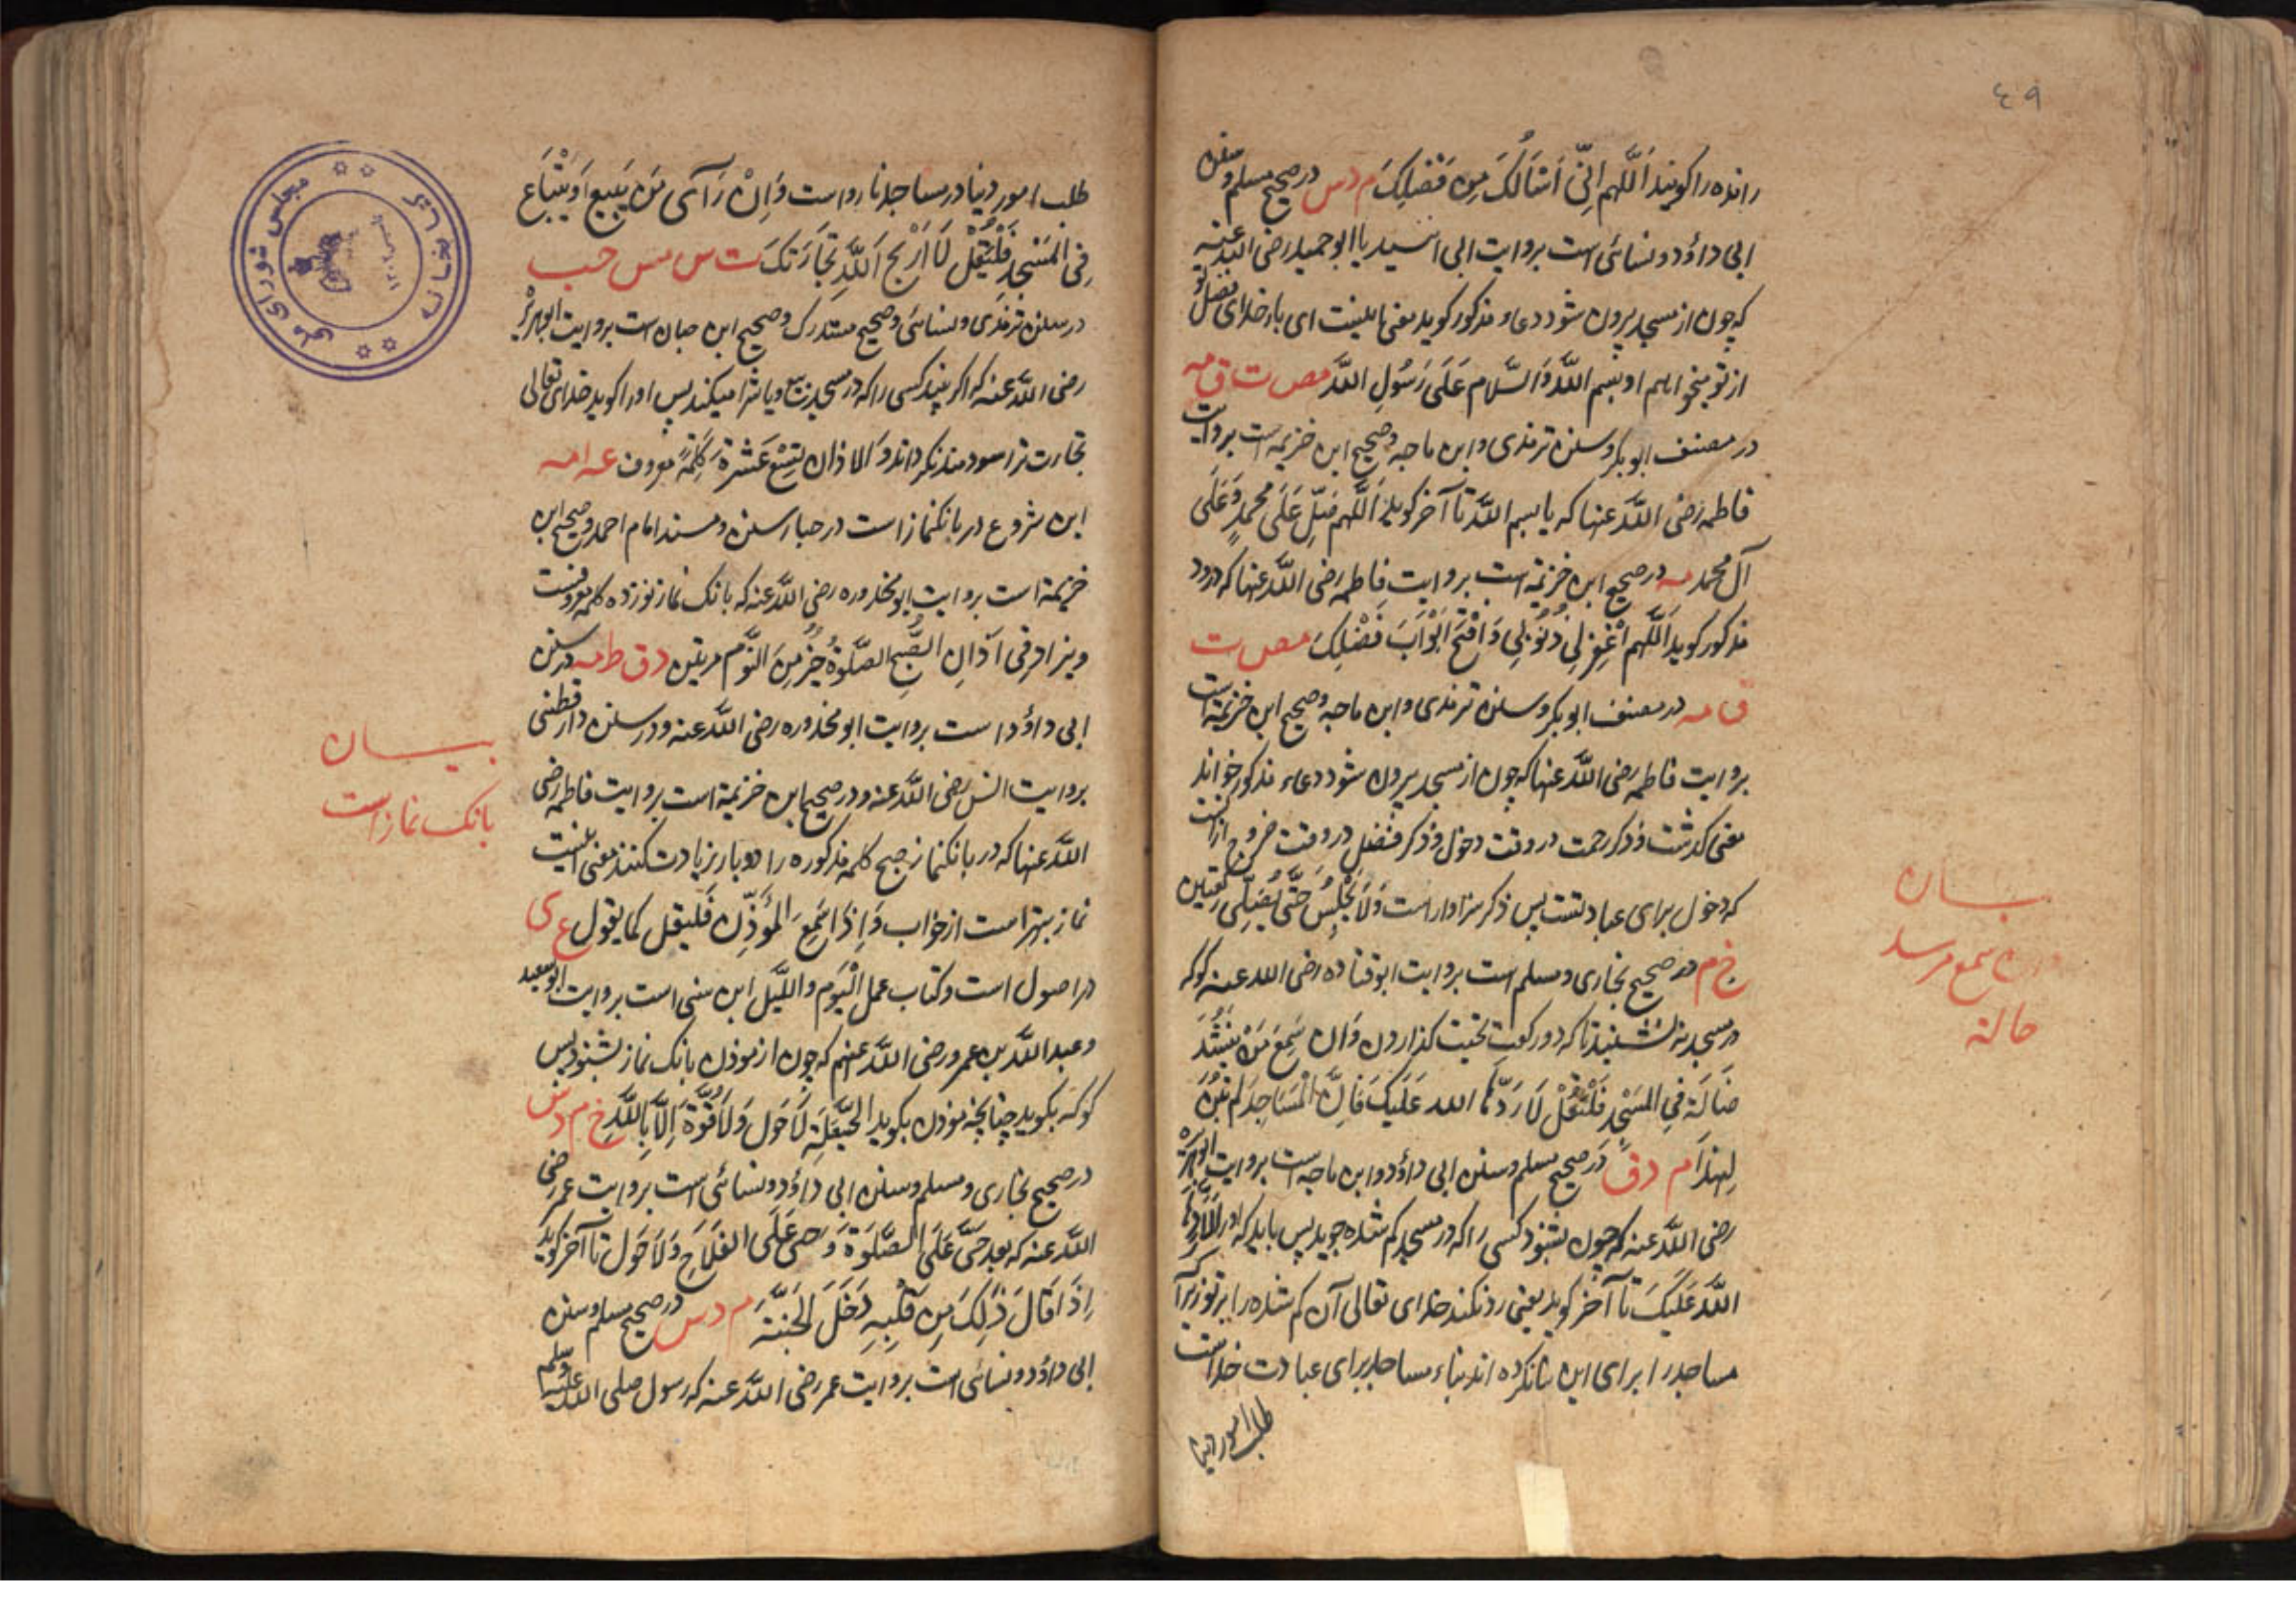 ٤٩
رانده را کویند اَللَّهم اِنِّی اَسْاَلُکَ مِن فَضلِکَ م د س در صحیح مسلم و سنن
ابی داؤد و نسائی است بروایت ابی اسید یا ابو حمید رضی الله عنه
که چون از مسجد بیرون شود دعاء مذکور کوید معنی اینست ای بار خدای فضل تو
از تو میخواهم او بسم الله وَالسَّلام عَلَی رَسُولِ الله مص ت ق مه
در مصنف ابوبکر و سنن ترمذی و ابن ماجه و صحیح ابن خزیمه است بروایت
فاطمه رضی الله عنها که یا بسم الله تا آخر کوید یا اَللَّهم صَلِّ عَلَی محمدٍ وَعَلَی
آل محمد مه در صحیح ابن خزیمة است بروایت فاطمه رضی الله عنها که درود
مذکور کوید اَللَّهم اغْفِر لِی ذُنُوبِی وَافْتَح اَبْوَابَ فَضْلِکَ مص ت
ق مه در مصنف ابوبکر و سنن ترمذی و ابن ماجه و صحیح ابن خزیمة است
بروایت فاطمه رضی الله عنها که چون از مسجد بیرون شود دعاء مذکور خواند
معنی کذشت و ذکر رحمت در وقت دخول و ذکر فضل در وقت خروج ازانست
که دخول برای عبادتست پس ذکر سزاوار است وَلَا یَجْلِسُ حَتَّی یُصَلِّی رکعتین
خ م در صحیح بخاری و مسلم است بروایت ابو قتاده رضی الله عنه کوکه
در مسجد نه نشیند تا که دو رکعت تحیت کذارد وَان سَمِعَ مَنْ یَنْشُدُ
ضَالَةً فِی المَسْجِدِ فَلْیَقُلْ لَا رَدَّهَا الله عَلَیکَ فَاِنَّ المَسَاجِدَ لم تُبْنَ
لِهذَا م د ق در صحیح مسلم و سنن ابی داؤد و ابن ماجه است بروایت ابو هریرة
رضی الله عنه که چون بشنود کسی را که در مسجد کم شده جوید پس باید که او را لَا رَدَّهَا
الله عَلَیکَ تا آخر کوید یعنی رد نکند خدای تعالی آن کم شده را بر تو زیرا که
مساجد را برای این بنا نکرده اند بناء مساجد برای عبادت خداست
طلب امور دنیا
بیان
سمع مر
حالة
طلب امور دنیا در مساجد نا رواست وَاِنْ رَآی مَن یَبِیع اَو یَبْتَاع
فِی المَسْجِدِ فَلْیَقُلْ لَا اَرْبَحَ اَللّٰه تِجَارَتَکَ ت س مس حب
در سنن ترمذی و نسائی و صحیح مستدرک و صحیح ابن حبان است بروایت ابو هریرة
رضی الله عنه که اکر بیند کسی را که در مسجد بیع و یا شرا میکند پس او را کوید خدای تعالی
تجارت ترا سودمند نکرداند وَالاذان تِسْعَ عَشْرَةَ کَلِمَةً معروف عه امه
این شروع در بانکنماز است در چهار سنن و مسند امام احمد و صحیح ابن
خزیمة است بروایت ابو محذوره رضی الله عنه که بانک نماز نوزده کلمه معروفست
ویزاد فِی آذَانِ الصُّبحِ الصَّلوةُ خَیرٌ مِنَ النَّوم مرتین د ق ط مه در سنن
ابی داؤد است بروایت ابو محذوره رضی الله عنه و در سنن دارقطنی
بروایت انس رضی الله عنه و در صحیح ابن خزیمة است بروایت فاطمه رضی
الله عنها که در بانکنماز صبح کلمه مذکوره را دو بار زیادت کنند معنی اینست
نماز بهتر است از خواب وَاِذَا سَمِعَ المُؤَذِّن فَلیَقل کما یقول ع ی
در اصول است و کتاب عمل الیَوم واللَّیل ابن سنی است بروایت ابو سعید
و عبد الله بن عمرو رضی الله عنهم که چون از موذن بانک نماز بشنود پس
کوکه بکوید چنانچه موذن بکوید الحَیعَلَةِ لَا حَول وَلَا قُوَّةَ اِلَّا بِاللّٰه خ م د س
در صحیح بخاری و مسلم و سنن ابی داؤد و نسائی است بروایت عمر رضی
الله عنه که بعد حَیَّ عَلَی الصَّلوة وَ حی عَلَی الفَلَاحِ وَلَا حَول تا آخر کوید
اِذَا قَالَ ذٰلِکَ مِن قَلبِهِ دَخَلَ الجَنَّةَ م د س در صحیح مسلم و سنن
ابی داؤد و نسائی است بروایت عمر رضی الله عنه که رسول صلی الله علیه وسلم
بیان
بانک نماز است
کتابخانه
مجلس شورای ملی